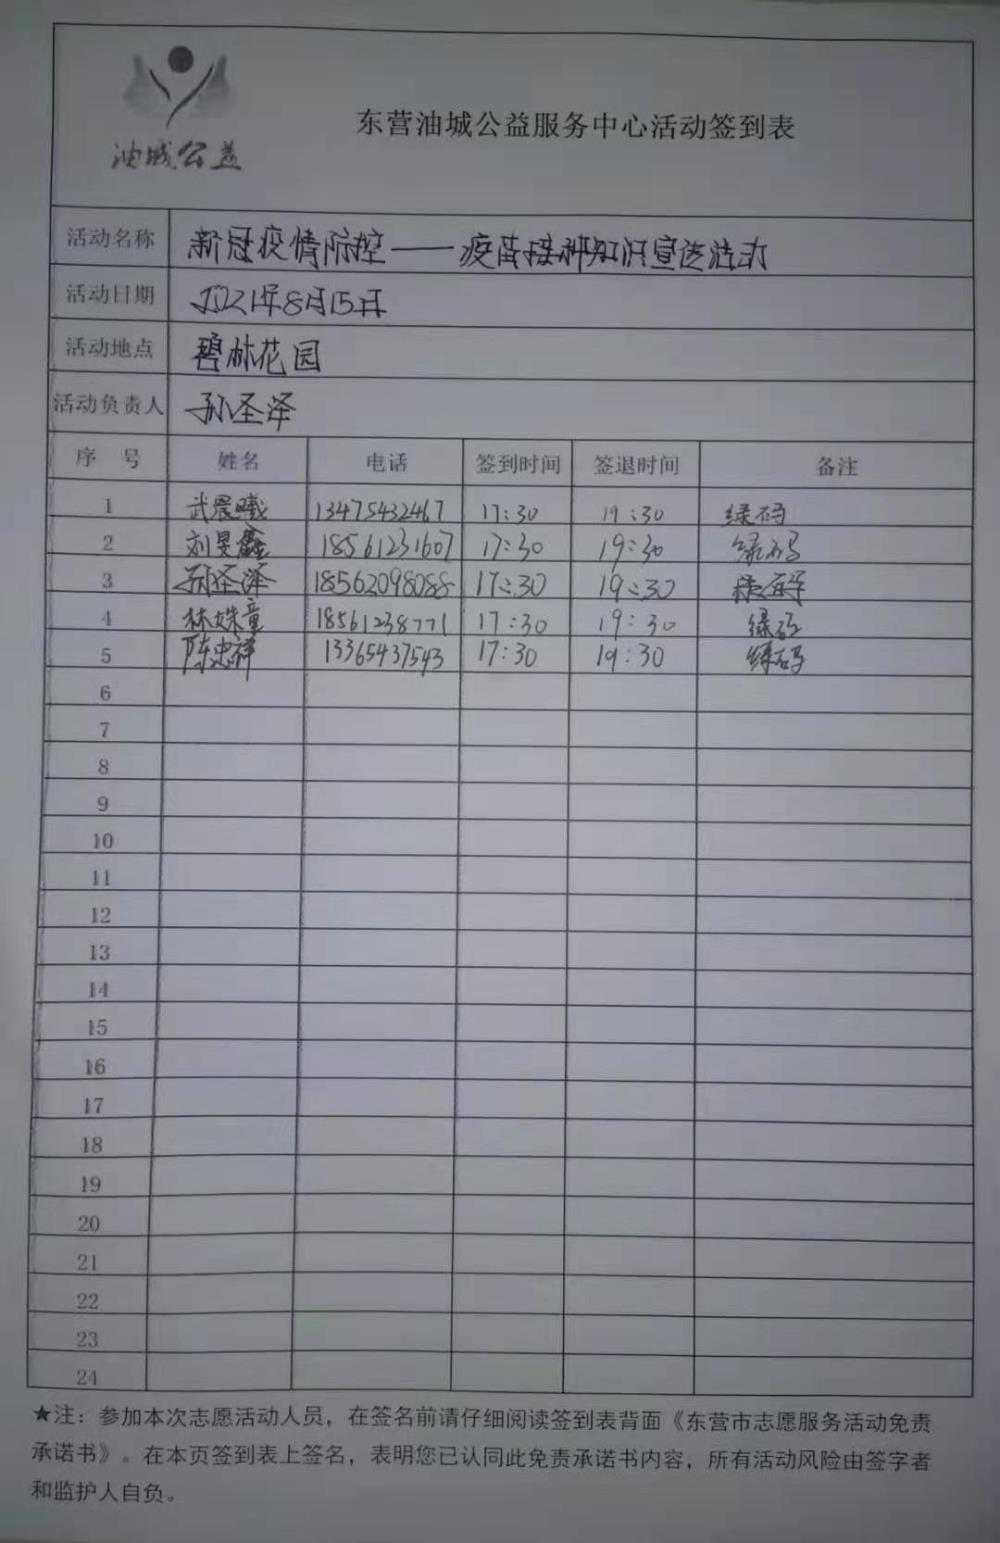 油城公益
东营油城公益服务中心活动签到表
活动名称 新冠疫情防控——疫苗接种知识宣传活动
活动日期 2021年8月15日
活动地点 碧林花园
活动负责人 孙圣泽
序 号 姓名 电话 签到时间 签退时间 备注
1 武晨曦 13475432467 17:30 19:30 绿码
2 刘旻鑫 18561231607 17:30 19:30 绿码
3 孙圣泽 18562098088 17:30 19:30 绿码
4 林姝童 18561238771 17:30 19:30 绿码
5 陈忠祥 13365437543 17:30 19:30 绿码
6
7
8
9
10
11
12
13
14
15
16
17
18
19
20
21
22
23
24
★注：参加本次志愿活动人员，在签名前请仔细阅读签到表背面《东营市志愿服务活动免责
承诺书》。在本页签到表上签名，表明您已认同此免责承诺书内容，所有活动风险由签字者
和监护人自负。